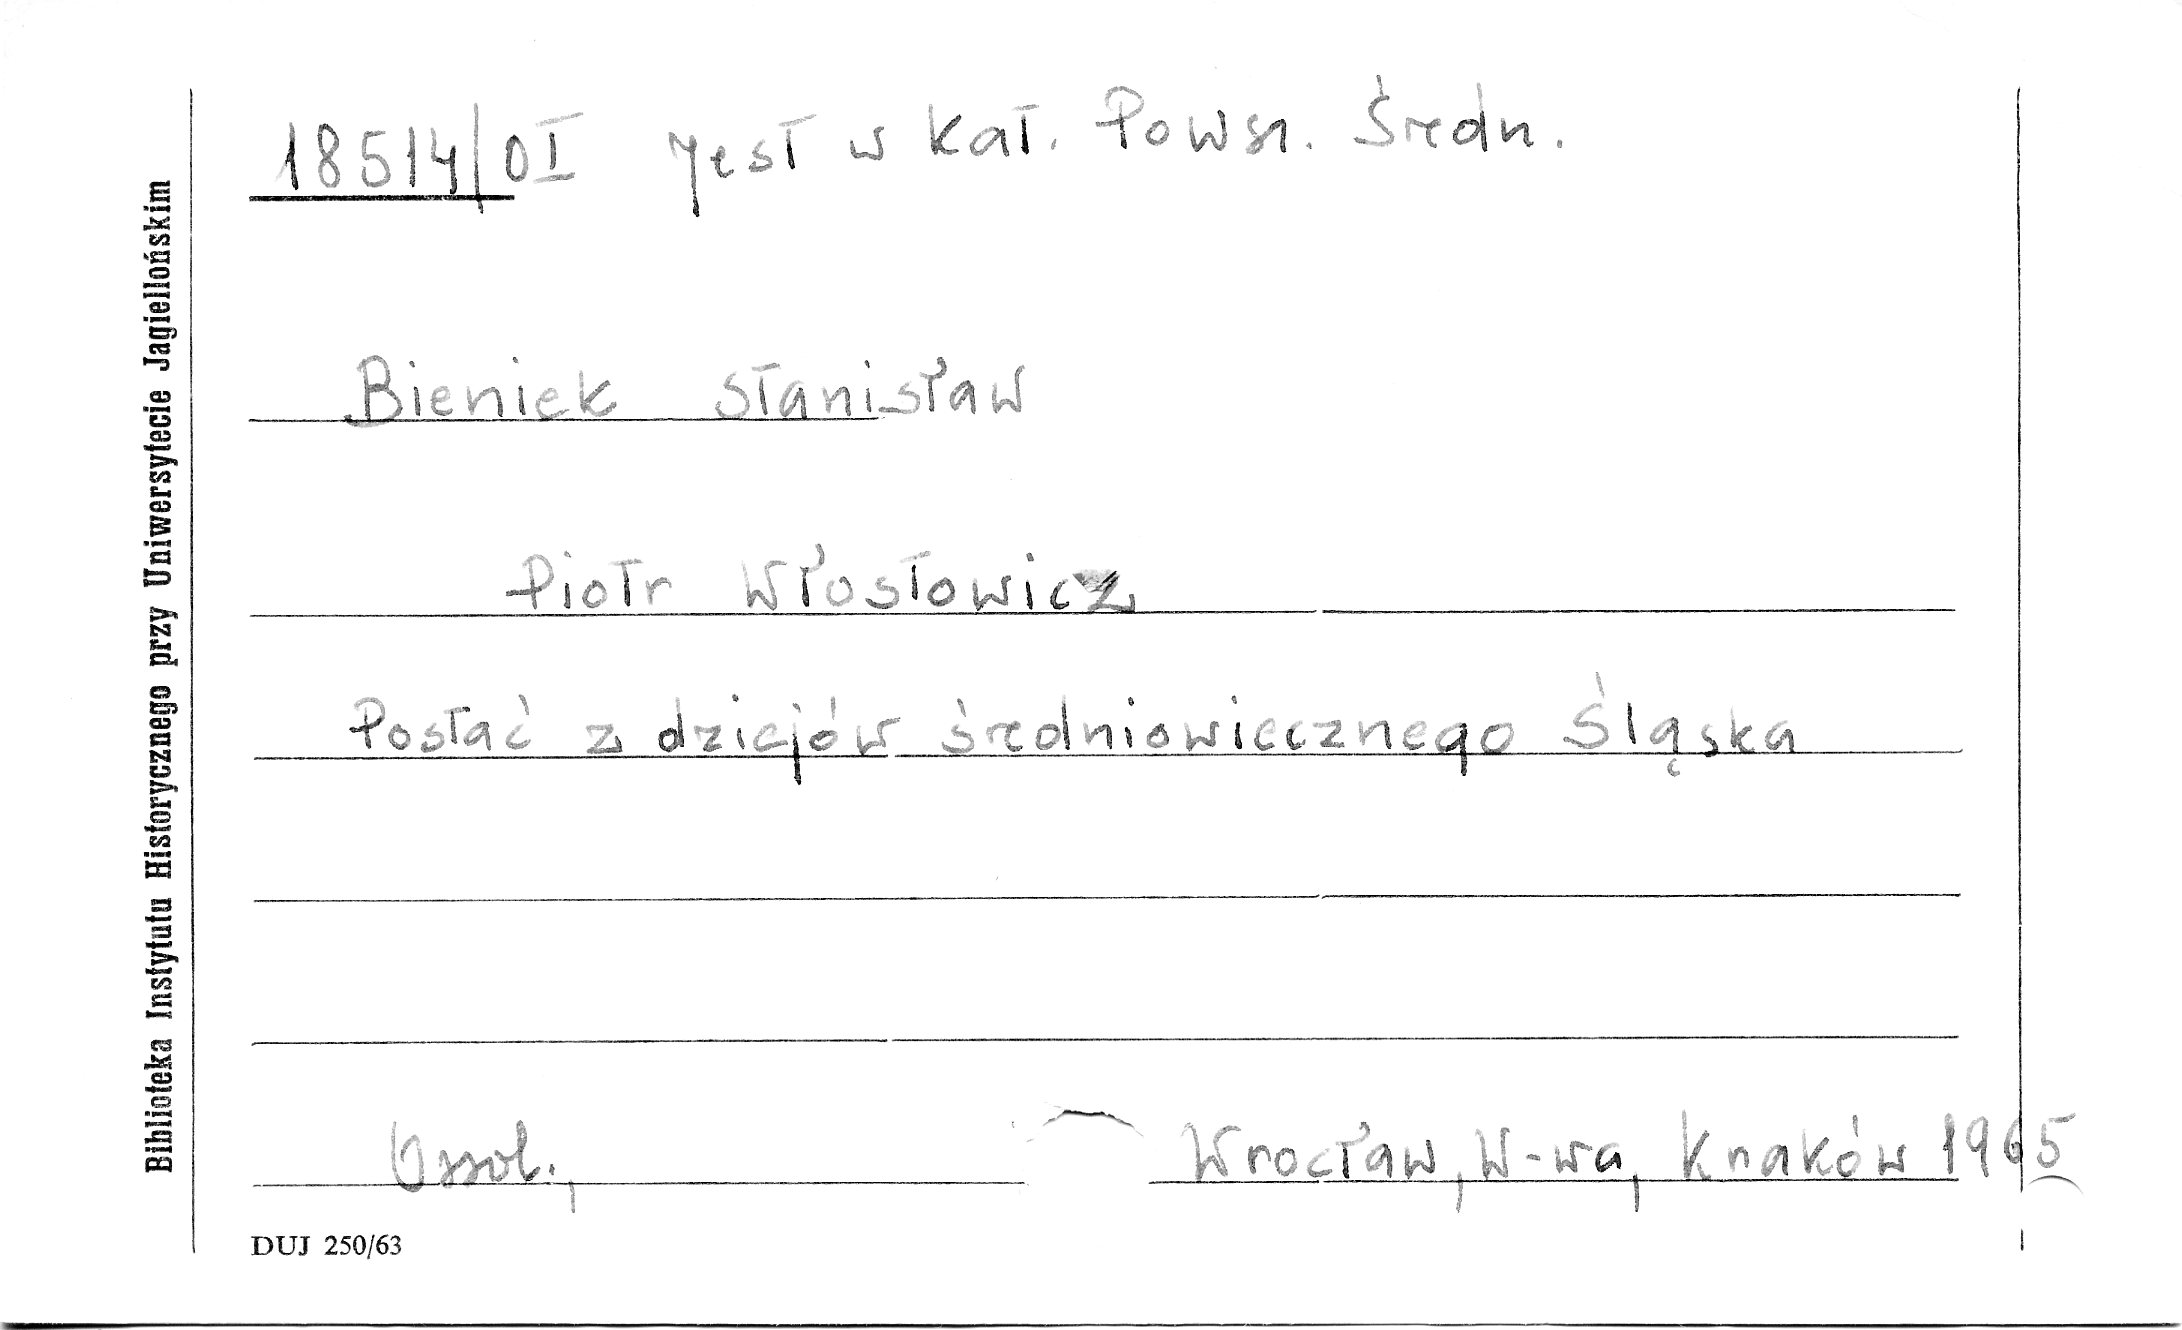 18514/OI jest w kat. Powsz. Średn.
Bieniek Stanisław
Piotr Włostowicz
Postać z dziejów średniowiecznego Śląska
Ossol., Wrocław, W-wa, Kraków 1965
DUJ 250/63
Biblioteka Instytutu Historycznego przy Uniwersytecie Jagiellońskim